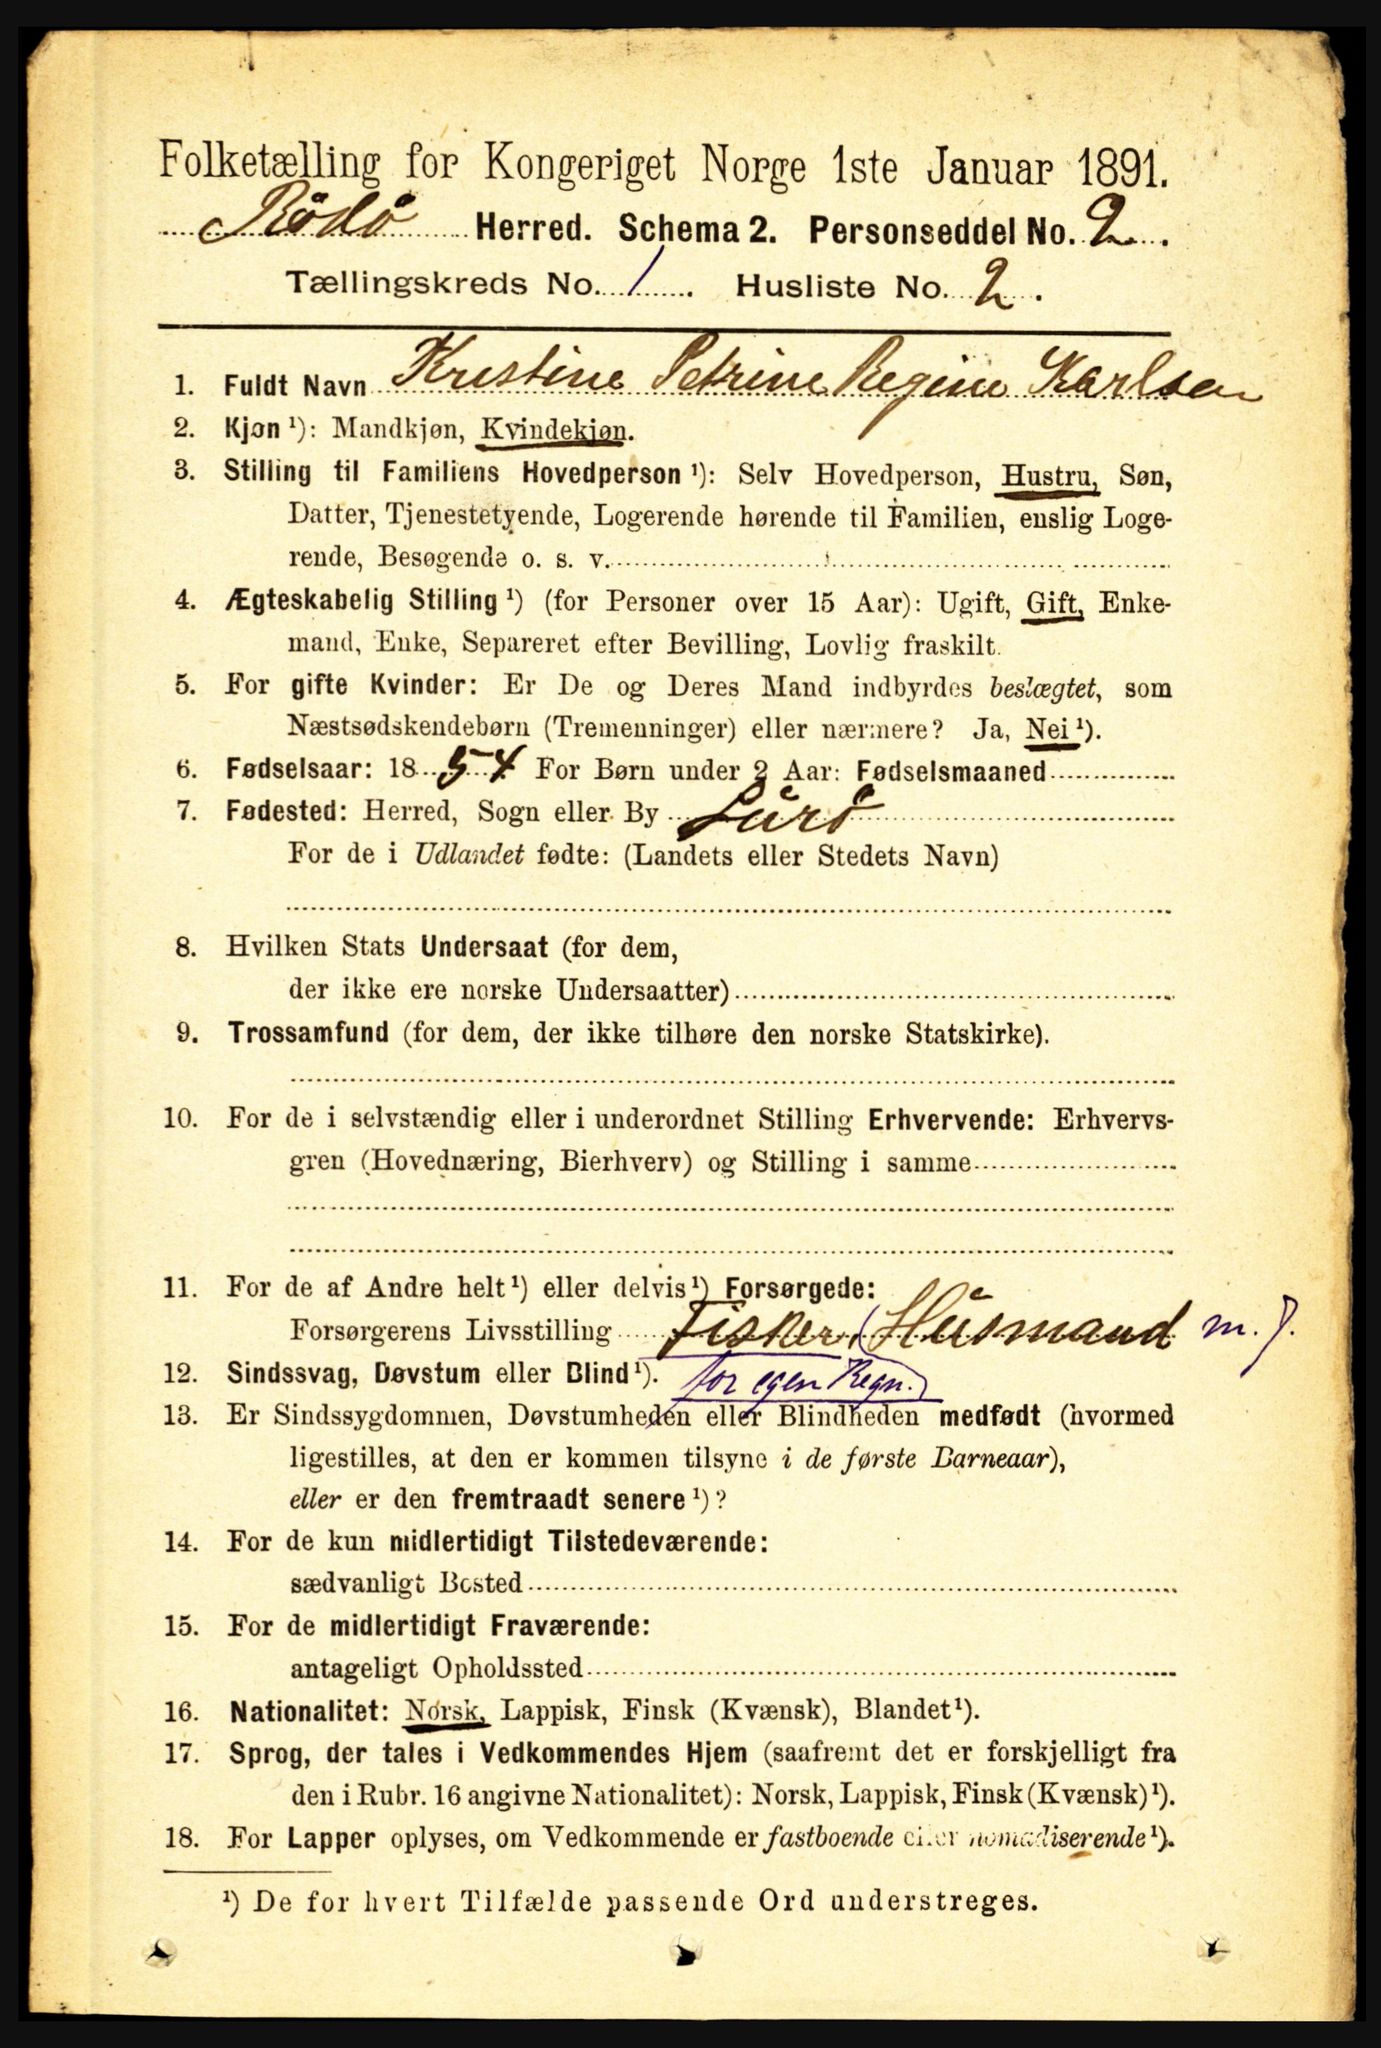 Folketælling for Kongeriget Norge 1ste Januar 1891.
Rödö Herred. Schema 2. Personseddel No. 2.
Tællingskreds No. 1. Husliste No. 2.
1. Fuldt Navn Kristine Petrine Regine Karlsen
2. Kjøn ¹): Mandkjøn, Kvindekjøn.
3. Stilling til Familiens Hovedperson ¹): Selv Hovedperson, Hustru, Søn,
Datter, Tjenestetyende, Logerende hørende til Familien, enslig Loge-
rende, Besøgende o. s. v.
4. Ægteskabelig Stilling ¹) (for Personer over 15 Aar): Ugift, Gift, Enke-
mand, Enke, Separeret efter Bevilling, Lovlig fraskilt.
5. For gifte Kvinder: Er De og Deres Mand indbyrdes beslægtet, som
Næstsødskendebørn (Tremenninger) eller nærmere? Ja, Nei ¹).
6. Fødselsaar: 1854. For Børn under 2 Aar: Fødselsmaaned
7. Fødested: Herred, Sogn eller By Lurö
For de i Udlandet fødte: (Landets eller Stedets Navn)
8. Hvilken Stats Undersaat (for dem,
der ikke ere norske Undersaatter)
9. Trossamfund (for dem, der ikke tilhøre den norske Statskirke).
10. For de i selvstændig eller i underordnet Stilling Erhvervende: Erhvervs-
gren (Hovednæring, Bierhverv) og Stilling i samme
11. For de af Andre helt ¹) eller delvis ¹) Forsørgede:
Forsørgerens Livsstilling Fisker, (Husmand m. J.
12. Sindssvag, Døvstum eller Blind ¹). for egen Regn.)
13. Er Sindssygdommen, Døvstumheden eller Blindheden medfødt (hvormed
ligestilles, at den er kommen tilsyne i de første Barneaar),
eller er den fremtraadt senere ¹)?
14. For de kun midlertidigt Tilstedeværende:
sædvanligt Bosted
15. For de midlertidigt Fraværende:
antageligt Opholdssted
16. Nationalitet: Norsk, Lappisk, Finsk (Kvænsk), Blandet ¹).
17. Sprog, der tales i Vedkommendes Hjem (saafremt det er forskjelligt fra
den i Rubr. 16 angivne Nationalitet): Norsk, Lappisk, Finsk (Kvænsk) ¹).
18. For Lapper oplyses, om Vedkommende er fastboende eller nomadiserende ¹).
¹) De for hvert Tilfælde passende Ord understreges.